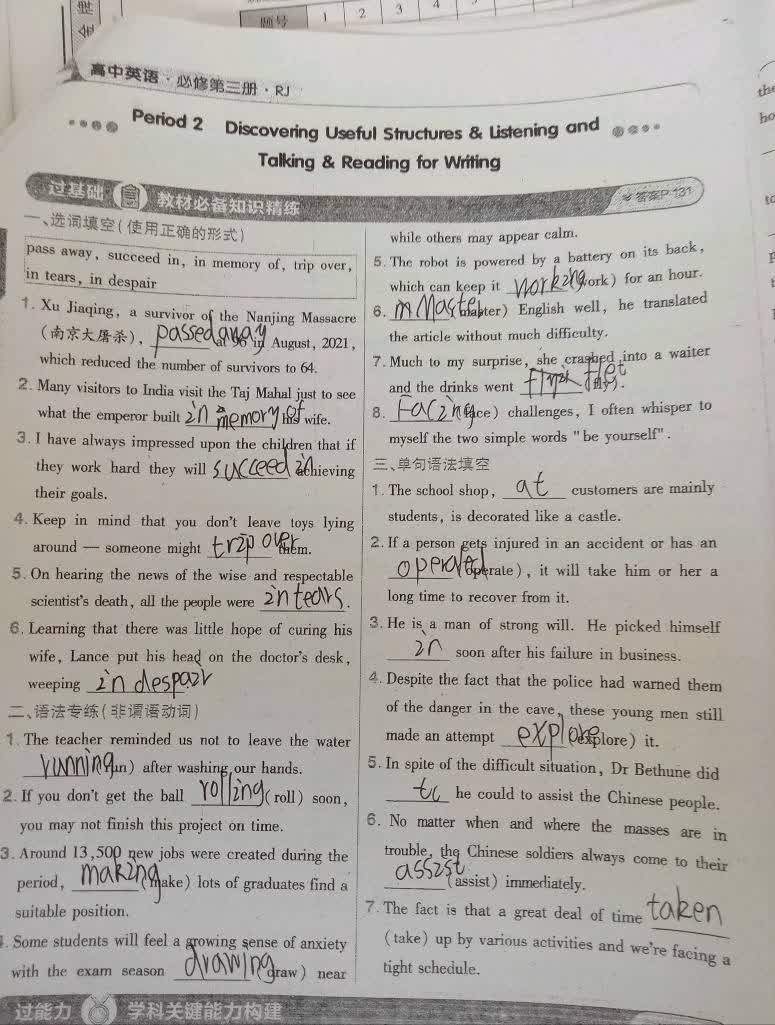 题号 1 2 3 4
高中英语·必修第三册·RJ
Period 2 Discovering Useful Structures & Listening and
Talking & Reading for Writing
过基础 教材必备知识精练
答案P131
一、选词填空(使用正确的形式)
pass away, succeed in, in memory of, trip over,
in tears, in despair
1. Xu Jiaqing, a survivor of the Nanjing Massacre
(南京大屠杀), passed away at 96 in August, 2021,
which reduced the number of survivors to 64.
2. Many visitors to India visit the Taj Mahal just to see
what the emperor built in memory of his wife.
3. I have always impressed upon the children that if
they work hard they will succeed in achieving
their goals.
4. Keep in mind that you don't leave toys lying
around — someone might trip over them.
5. On hearing the news of the wise and respectable
scientist's death, all the people were in tears.
6. Learning that there was little hope of curing his
wife, Lance put his head on the doctor's desk,
weeping in despair
二、语法专练(非谓语动词)
1. The teacher reminded us not to leave the water
running (run) after washing our hands.
2. If you don't get the ball rolling (roll) soon,
you may not finish this project on time.
3. Around 13,500 new jobs were created during the
period, making (make) lots of graduates find a
suitable position.
4. Some students will feel a growing sense of anxiety
with the exam season drawing (draw) near
while others may appear calm.
5. The robot is powered by a battery on its back,
which can keep it working (work) for an hour.
6. Master (master) English well, he translated
the article without much difficulty.
7. Much to my surprise, she crashed into a waiter
and the drinks went (fly).
8. Facing (face) challenges, I often whisper to
myself the two simple words "be yourself".
三、单句语法填空
1. The school shop, at customers are mainly
students, is decorated like a castle.
2. If a person gets injured in an accident or has an
operated (operate), it will take him or her a
long time to recover from it.
3. He is a man of strong will. He picked himself
in soon after his failure in business.
4. Despite the fact that the police had warned them
of the danger in the cave, these young men still
made an attempt explore (explore) it.
5. In spite of the difficult situation, Dr Bethune did
he could to assist the Chinese people.
6. No matter when and where the masses are in
trouble, the Chinese soldiers always come to their
assist (assist) immediately.
7. The fact is that a great deal of time taken
(take) up by various activities and we're facing a
tight schedule.
过能力 学科关键能力构建